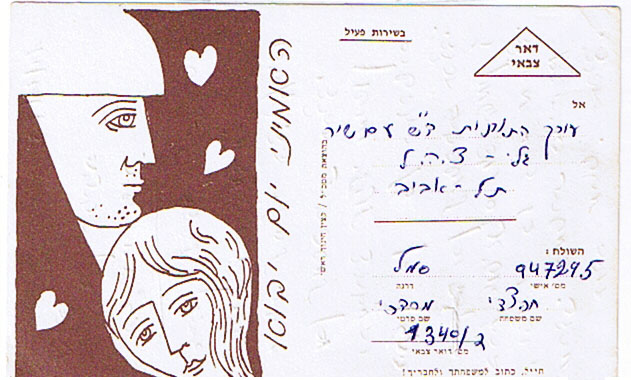 האמיני יום יבוא
בשירות פעיל
דאר
צבאי
אל
עורך התוכנית ק"ש עם שיר
גלי - צ.ה.ל
תל-אביב
השולח:
947295 סמל
מס׳ אישי דרגה
מרדכי
שם משפחה שם פרטי
1340/2
מס׳ דואר צבאי
חייל, כתוב למשפחתך ולחבריך!